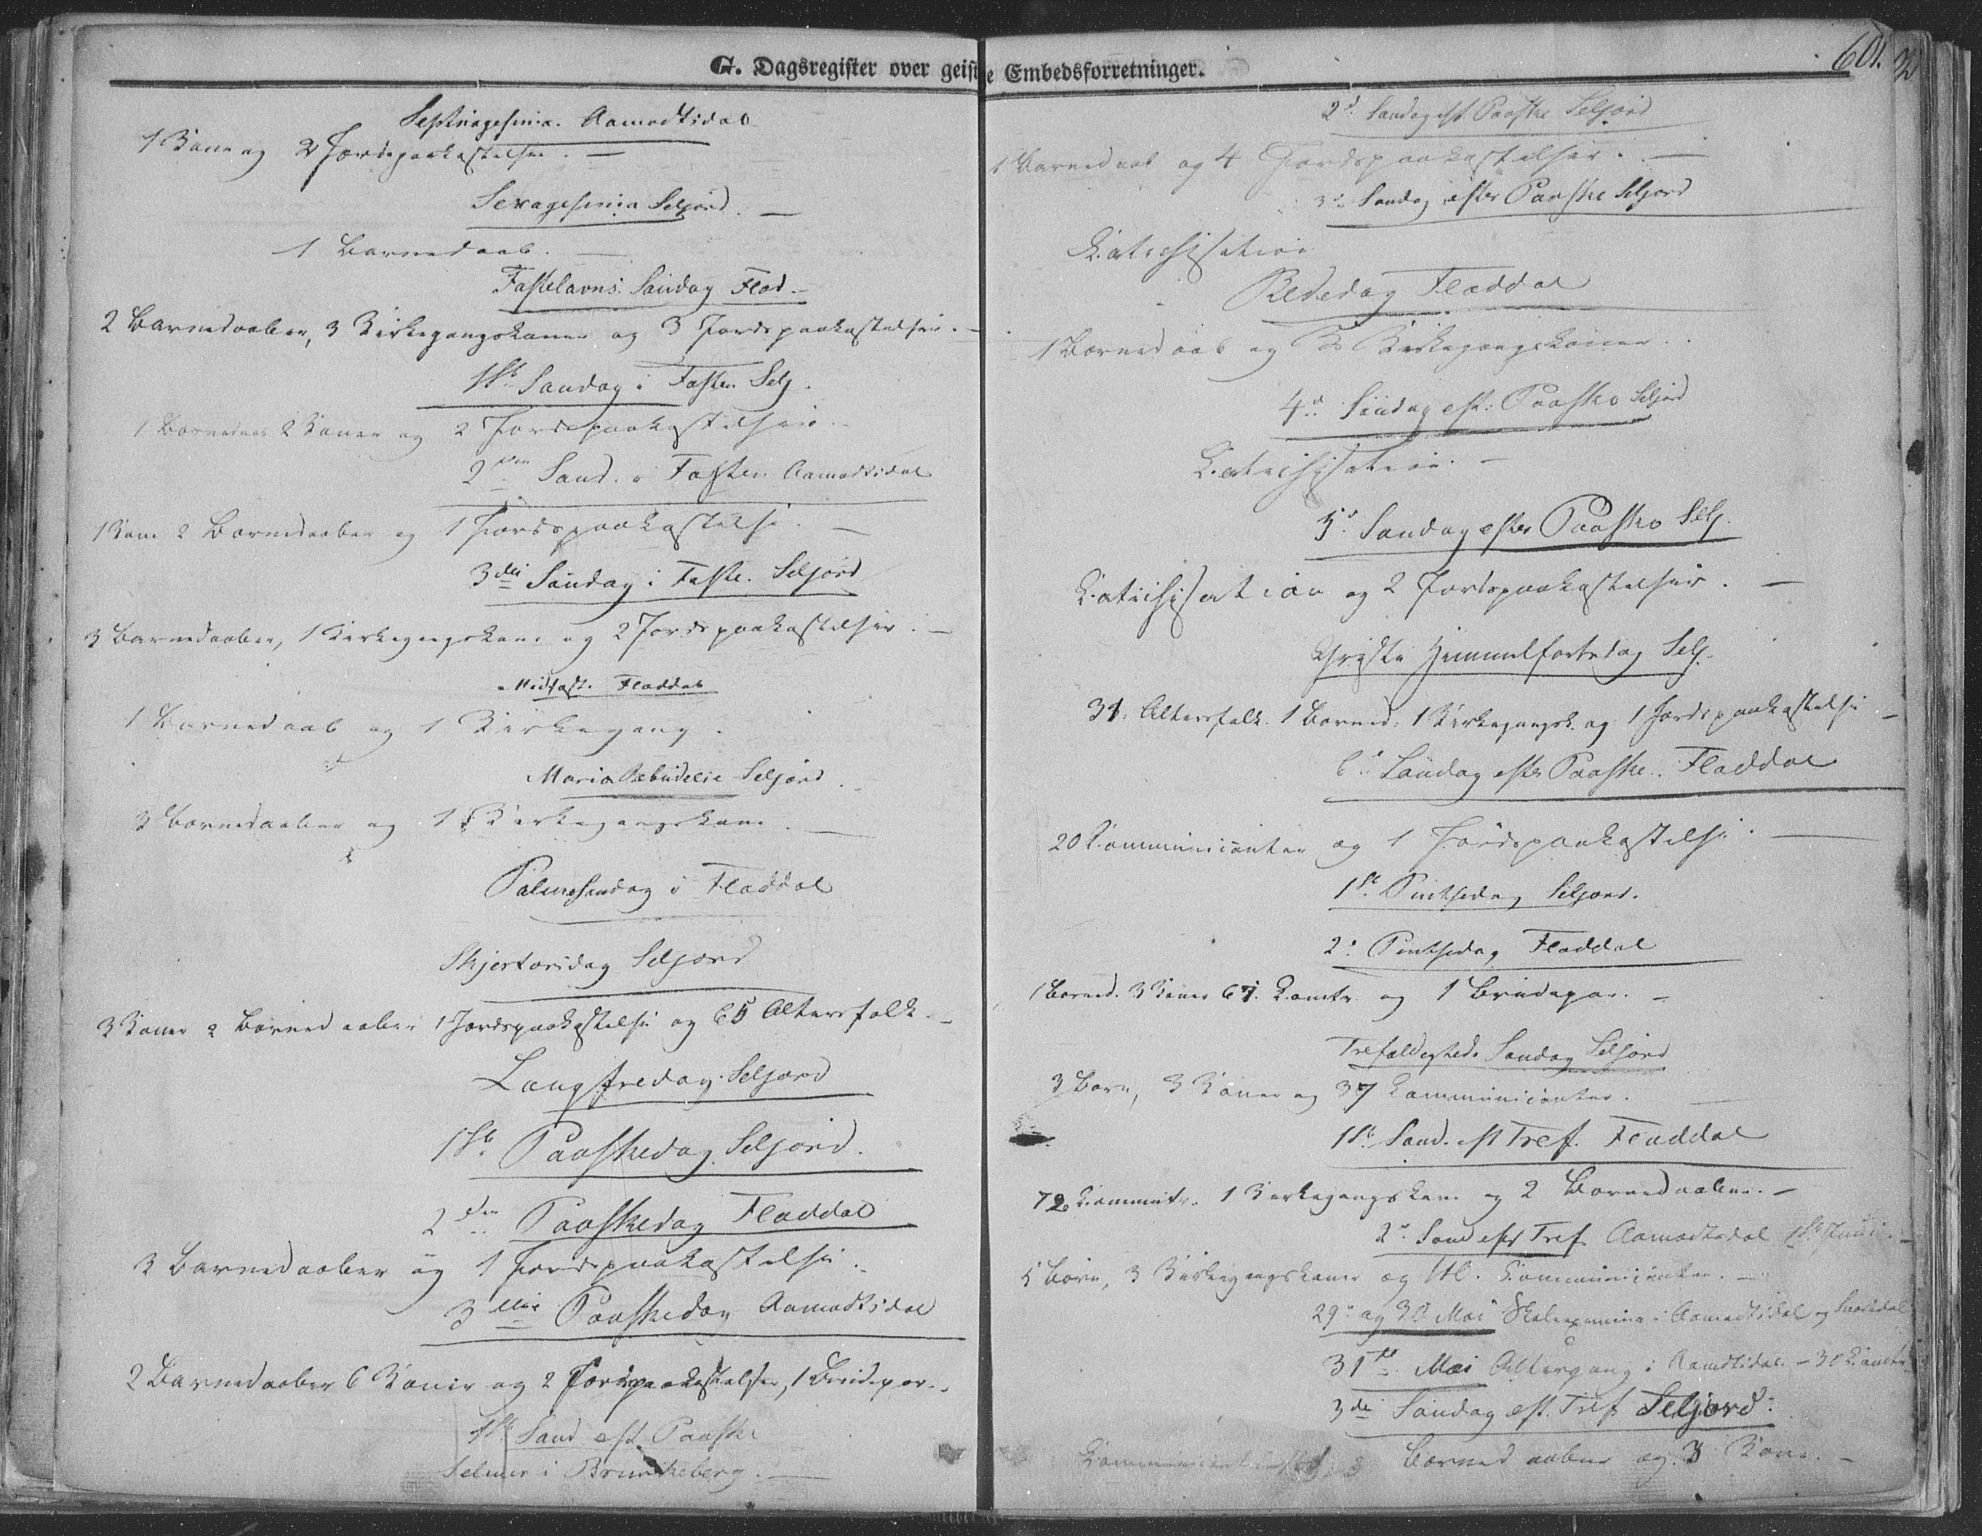 G. Dagsregister over geistlige Embedsforretninger.
601.
Septuagesima. Aamodtsdal
1 Kone og 2 Jordspaakastelser. —
Sexagesima Seljord. —
1 Barnedaab. —
Fastelavns Søndag Flad. —
2 Barnedaaber, 3 Kirkegangskoner og 3 Jordspaakastelser. —
1ste Søndag i Fasten Selj.
1 Barnedaab 2 Koner og 2 Jordspaakastelser. —
2den Sønd. i Fasten Aamodtsdal
1 Kone 2 Barnedaaber og 1 Jordspaakastelse. —
3die Søndag i Faste. Seljord
3 Barnedaaber, 1 Kirkegangskone og 2 Jordspaakastelser. —
Midfaste Fladdal
1 Barnedaab og 1 Kirkegang.
Maria Bebudelse Seljord.
3 Barnedaaber og 1 Kirkegangskone. —
Palmesøndag i Fladdal
Skjertorsdag Seljord
3 Koner 2 Barnedaaber 1 Jordspaakastelse og 65 Altersfolk. —
Langfredag Seljord
1ste Paaskedag Seljord.
2den Paaskedag Fladdal
3 Barnedaaber og 1 Jordspaakastelse.
3die Paaskedag Aamodtsdal
2 Barnedaaber 6 Koner og 2 Jordspaakastelser, 1 Brudepar. —
1ste Sønd eft. Paaske
i Brunkeberg. —
2d Søndag eft Paaske Seljord
1 Barnedaab og 4 Jordspaakastelser. —
3d Søndag efter Paaske Seljord
Catechisation
Bededag Fladdal
1 Barnedaab og 3 Kirkegangskoner.
4d Søndag eft: Paaske Seljord
Catechisation. —
5d Søndag efter Paaske Selj.
Catechisation og 2 Jordspaakastelser. —
Christi Himmelfartsdag Selj.
31. Altersfolk. 1 Barned: 1 Kirkegangsk. og 1 Jordspaakastelse —
6d Søndag efter Paaske. Fladdal
20 Communicanter og 1 Jordspaakastelse. —
1ste Pintsedag Seljord.
2d Pintsedag Fladdal
1 Barned. 3 Koner 67. Comtr. og 1 Brudepar. —
Trefoldigheds Søndag Seljord
3 Børn, 3 Koner og 37 Communicanter. —
1ste Sønd. eft Tref. Fladdal
72 Communtr. 1 Kirkegangskone og 2 Barnedaaber. —
2d Sønd eft Tref. Aamodtsdal 1ste Juni. —
5 Børn, 3 Kirkegangskoner og Communicanter. —
29d og 30d Mai Skoleexamina i Aamodtsdal og
31te Mai Altergang i Aamdtsdal — 30 Comtr.
3die Søndag eft. Tref. Seljord.
Communicanter 3 Barnedaaber og 3 Kone. —